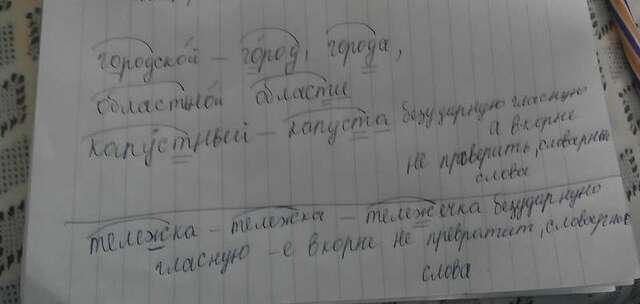 городской – город, города,
областной области
капустный – капуста безударную гласную
а в корне
не проверить, словарные
слова
тележка – тележка – тележечка безударную
гласную – е в корне не превратит, словарные
слова